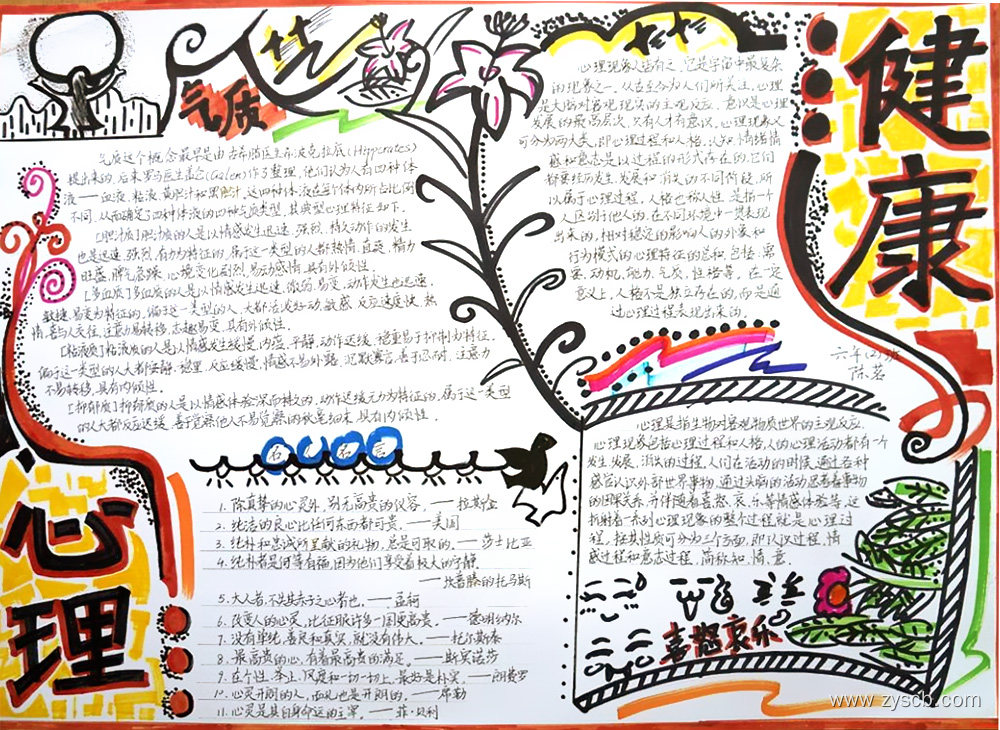 健康
心理
气质
气质这个概念最早是由古希腊医生希波克拉底(Hippcrates)
提出来的,后来罗马医生盖仑(Galen)作了整理,他们认为人有四种体
液——血液、粘液、黄胆汁和黑胆汁。这四种体液在每个体内所占比例
不同,从而确定了四种体液的四种气质类型。其典型心理特征如下。
[胆汁质]胆汁质的人是以情感发生迅速、强烈、持久动作的发生
也是迅速、强烈、有力为特征的。属于这一类型的人都热情,直爽,精力
旺盛,脾气急躁,心境变化剧烈,易动感情,具有外倾性。
[多血质]多血质的人是以情感发生迅速、微弱、易变,动作发生也迅速、
敏捷、易变为特征的。偏于这一类型的人,大都活泼好动,敏感,反应速度快,热
情,喜与人交往,注意力易转移,志趣易变,具有外倾性。
[粘液质]粘液质的人是以情感发生缓慢、内蕴、平静,动作迟缓、稳重易于抑制为特征。
偏于这一类型的人大都安静,稳重,反应缓慢,情感不易外露,沉默寡言,善于忍耐,注意力
不易转移,具有内倾性。
[抑郁质]抑郁质的人是以情感体验深而持久的、动作迟缓无力为特征的。属于这一类型
的人大都反应迟缓,善于觉察他人不易觉察的秋毫细末,具有内倾性。
名人名言
1. 除真挚的心灵外,别无高贵的仪容。——拉斯金
2. 纯洁的良心比任何东西都可贵。——美国
3. 纯朴和忠诚所呈献的礼物,总是可取的。——莎士比亚
4. 纯朴者是何等有福,因为他们享受着极大的宁静。
——坎普滕的托马斯
5. 大人者,不失其赤子之心者也。——孟轲
6. 改变人的心灵,比征服许多一国更高贵。——德明纳尔
7. 没有单纯、善良和真实,就没有伟大。——托尔斯泰
8. 最高贵的心,有着最高贵的满足。——斯宾诺莎
9. 在个性、举止、风度和一切一切上,最好是朴实。——朗费罗
10. 心灵开朗的人,面孔也是开朗的。——席勒
11. 心灵是其自身命运的主宰。——菲·贝利
心理现象人皆有之,它是宇宙中最复杂
的现象之一,从古至今为人们所关注。心理
是大脑对客观现实的主观反应,意识是心理
发展的最高层次,只有人才有意识。心理现象又
可分为两大类,即心理过程和人格。认知、情绪情
感和意志是以过程的形式存在的,它们
都要经历发生、发展和消失的不同阶段,所
以属于心理过程。人格也称人性,是指一个
人区别于他人的,在不同环境中一贯表现
出来的,相对稳定的影响人的外显和
行为模式的心理特征的总和,包括:需
要、动机、能力、气质、性格等。在一定
意义上,人格不是独立存在的,而是通
过心理过程表现出来的。
六年(2)班
陈茗
心理是指生物对客观物质世界的主观反应,
心理现象包括心理过程和人格,人的心理活动都有一个
发生、发展、消失的过程。人们在活动的时候,通过各种
感官认识外部世界事物,通过头脑的活动思考着事物
的因果关系,并伴随着喜、怒、哀、乐等情感体验等。这
折射着一系列心理现象的整个过程就是心理过
程。按其性质可分为三个方面,即认识过程、情
感过程和意志过程,简称知、情、意。
喜怒哀乐
www.zyscb.com